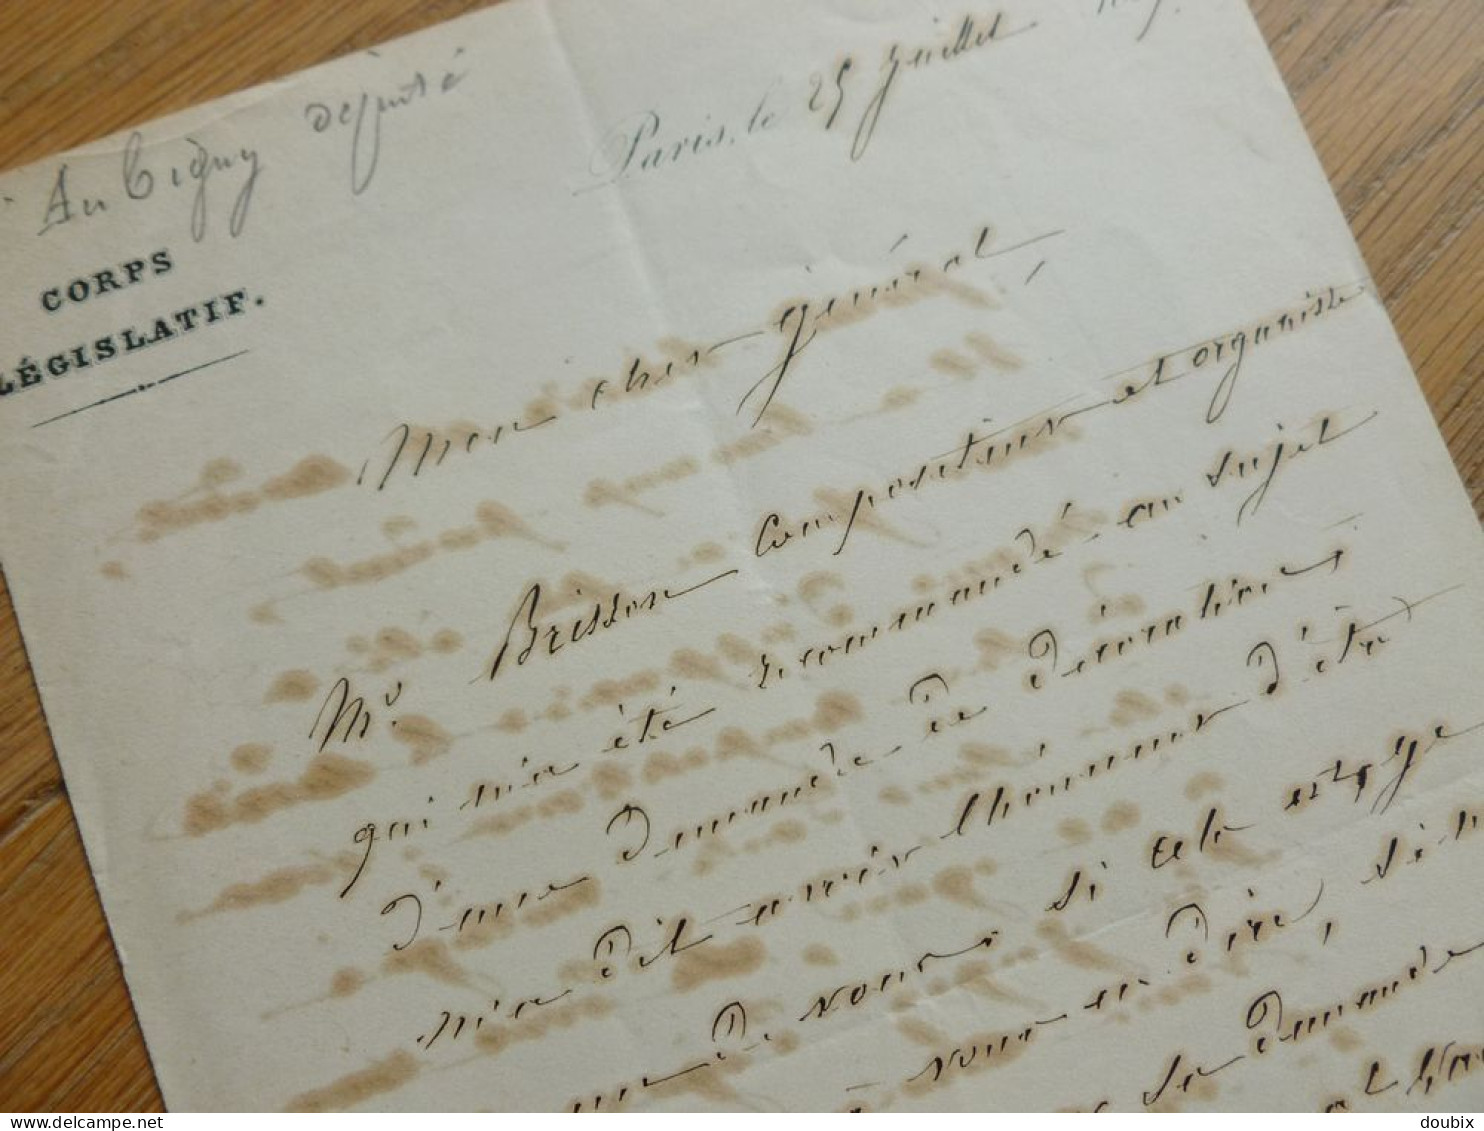 Aubigny député
CORPS
LÉGISLATIF.
Paris, le 25 Juillet
Mon cher général,
Mr. Brisson compositeur et organiste
qui m'a été recommandé au sujet
d'une demande de décorations
m'a dit avoir l'honneur d'être
de vous si cela
vous en dire, si
demande
doubix